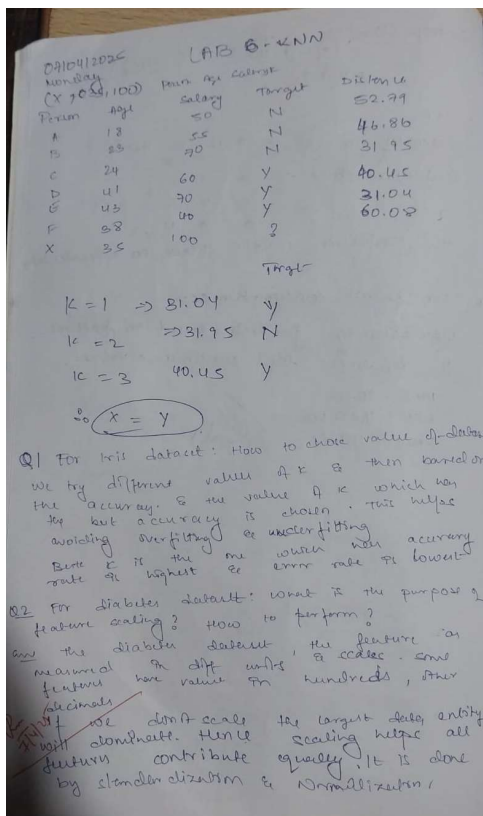 LAB 6 - KNN
07/04/2025
Monday
(X, 035, 100)
Person Age Salary Target Distance
A 18 50 N 52.79
B 23 55 N 46.86
C 24 70 N 31.95
D 41 60 Y 40.45
E 43 70 Y 31.04
F 38 40 Y 60.08
X 35 100 ?
Target
K = 1 => 31.04 Y
K = 2 => 31.95 N
K = 3 40.45 Y
∴ X = Y
Q1 For Iris dataset : How to chose value of
we try different value of K & then based on
the accuracy. & the value of K which has
the but accuracy is chosen. This helps
avoiding overfitting & underfitting
Best K is the one which has accuracy
rate is highest & error rate is lowest
Q2 For diabetes dataset : what is the purpose of
feature scaling? How to perform?
ans the diabetes dataset, the feature are
measured in diff units & scales. some
features have value in hundreds, other
decimals
If we don't scale the largest data entity
will dominate. Hence scaling helps all
features contribute equally. It is done
by standerdization & Normalization.